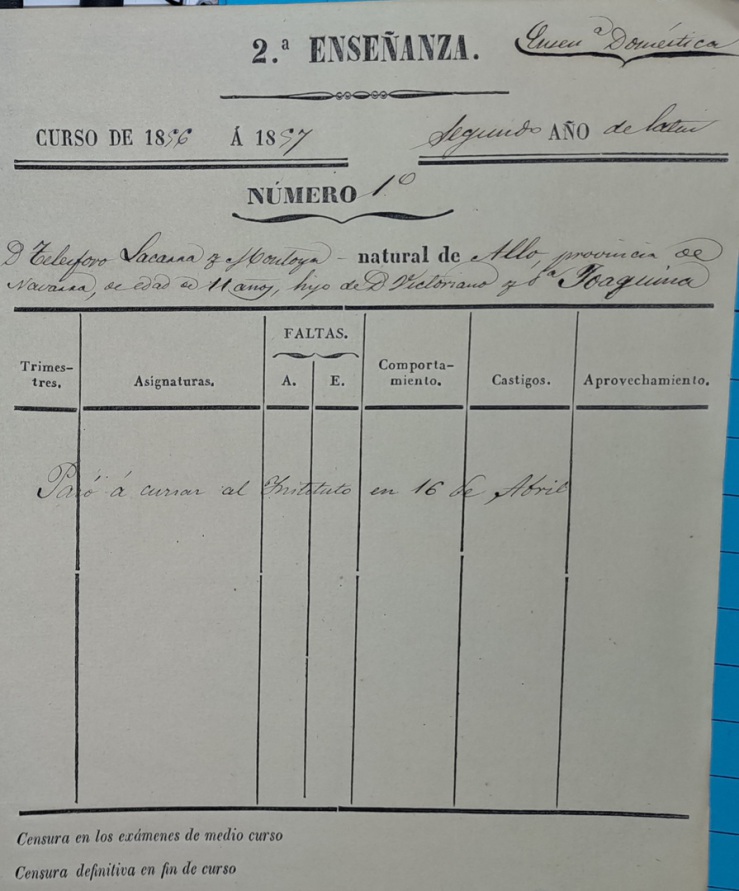 2.ª ENSEÑANZA. Enseñ.ª Doméstica
CURSO DE 1856 Á 1857 Segundo AÑO de latin
NÚMERO 1º
D Telesforo Lacarra y Montoya - natural de Allo, provincia de
Navarra, de edad de 11 años, hijo de D Victoriano y Dª Joaquina
FALTAS.
Trimes-
tres. Asignaturas. A. E. Comporta-
miento. Castigos. Aprovechamiento.
Pasó á cursar al Instituto en 16 de Abril
Censura en los exámenes de medio curso
Censura definitiva en fin de curso